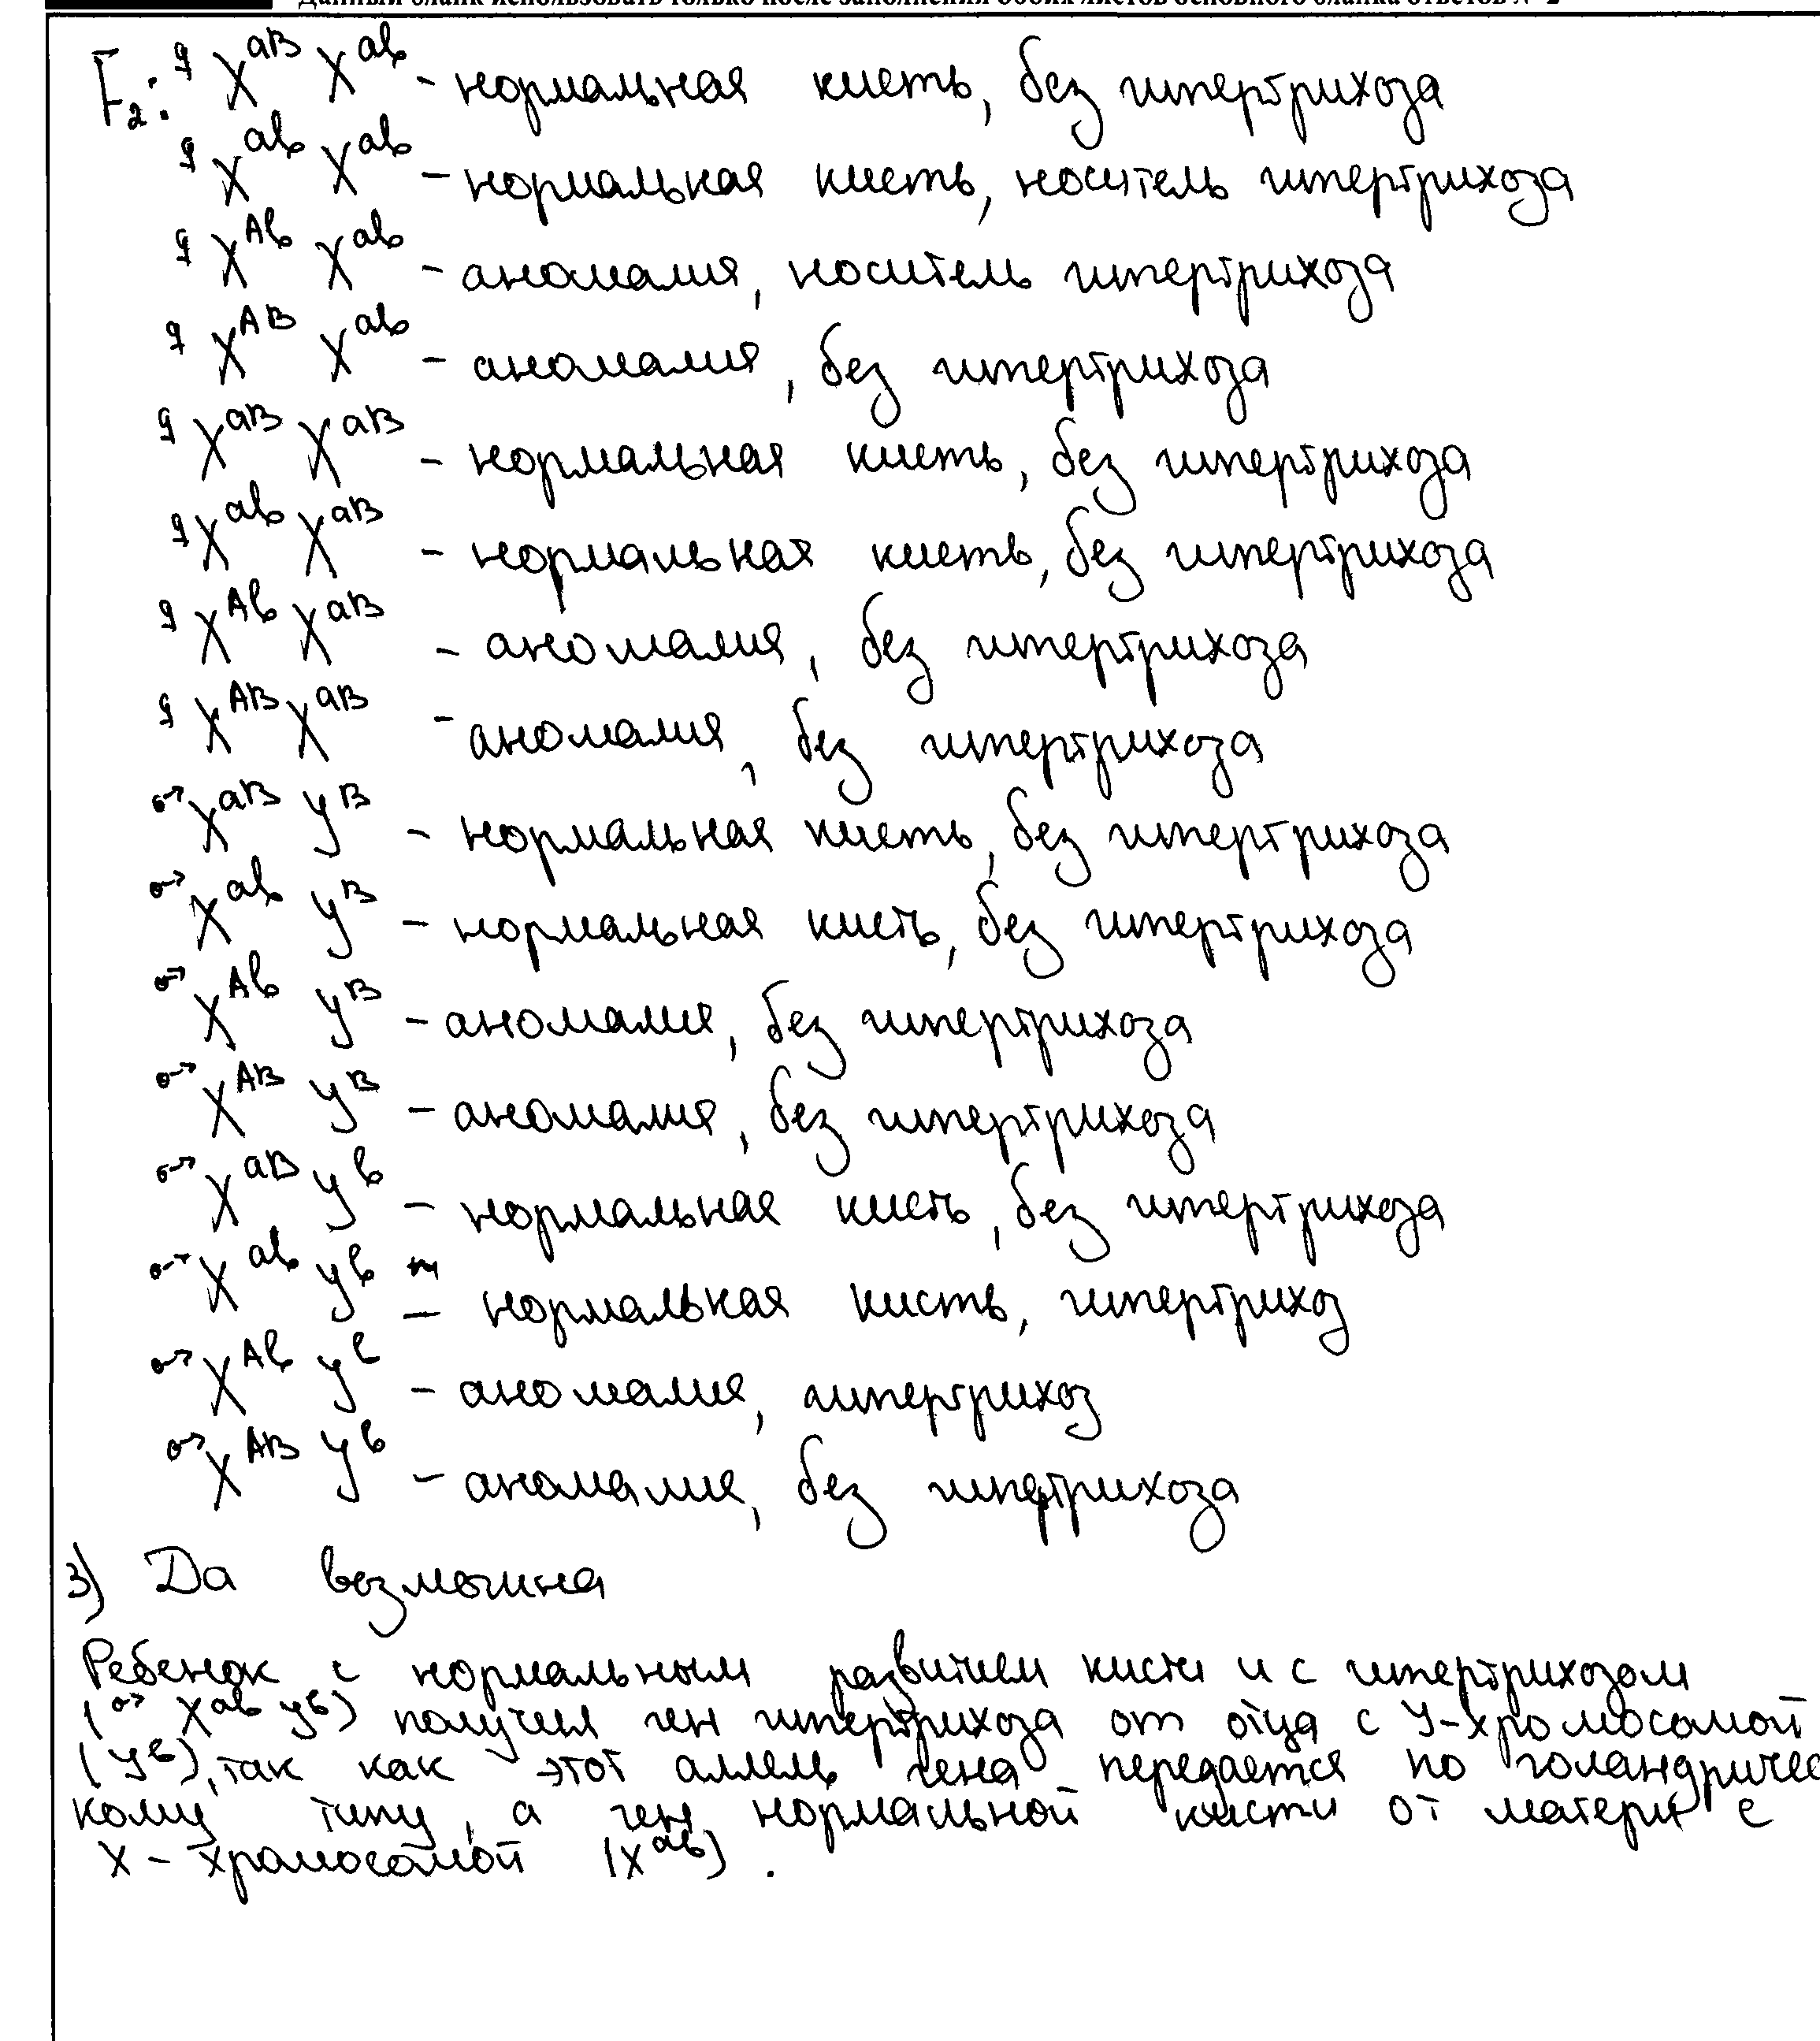 Данный бланк использовать только после заполнения обоих листов основного бланка ответов № 2
F₂: ♀ X^aB X^ab - нормальная кисть, без гипертрихоза
♀ X^ab X^ab - нормальная кисть, носитель гипертрихоза
♀ X^Ab X^ab - аномалия, носитель гипертрихоза
♀ X^AB X^ab - аномалия, без гипертрихоза
♀ X^aB X^aB - нормальная кисть, без гипертрихоза
♀ X^ab X^aB - нормальная кисть, без гипертрихоза
♀ X^Ab X^aB - аномалия, без гипертрихоза
♀ X^AB X^aB - аномалия, без гипертрихоза
♂ X^aB y^B - нормальная кисть, без гипертрихоза
♂ X^ab y^B - нормальная кисть, без гипертрихоза
♂ X^Ab y^B - аномалия, без гипертрихоза
♂ X^AB y^B - аномалия, без гипертрихоза
♂ X^aB y^b - нормальная кисть, без гипертрихоза
♂ X^ab y^b - нормальная кисть, гипертрихоз
♂ X^Ab y^b - аномалия, гипертрихоз
♂ X^AB y^b - аномалия, без гипертрихоза
3) Да возможна
Ребенок с нормальным развитием кисти и с гипертрихозом
(♂ X^ab y^b) получил ген гипертрихоза от отца с У-хромосомой
(У^b), так как этот аллель гена передается по голандричес
кому типу, а ген нормальной кисти от матери с
Х - хромосомой (X^ab).